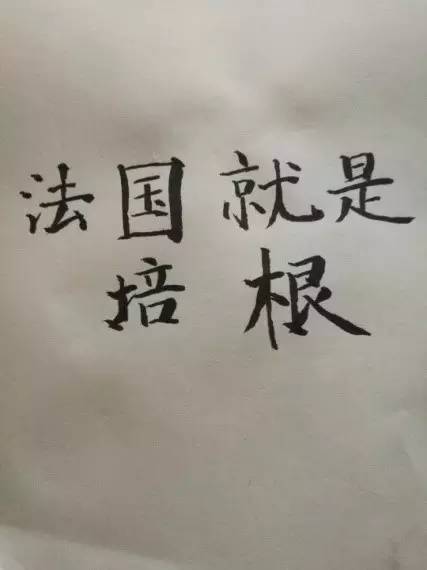 法国就是
培根